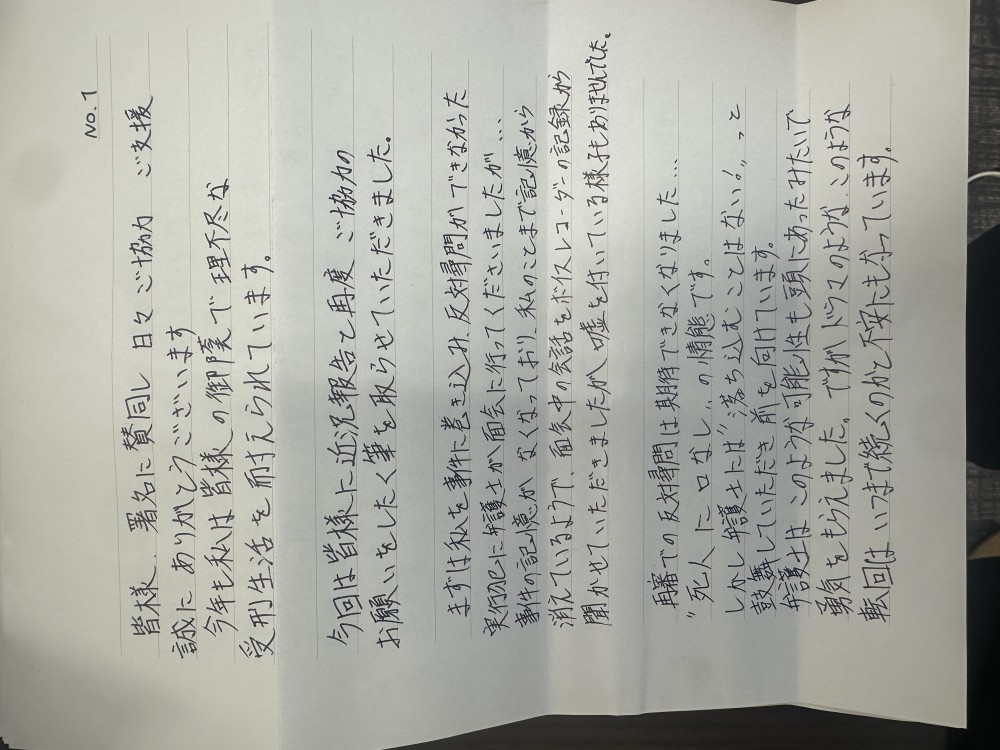 NO.1
皆様、署名に賛同し 日々 ご協力 ご支援
誠に ありがとうございます
今年も私は 皆様 の 御陰で 理不尽な
受刑生活 を 耐えられて います。
今回は 皆様に 近況報告 と 再度 ご協力の
お願いをしたく 筆を取らせていただきました。
まずは 私を 事件に 巻き込み、反対尋問ができなかった
実行犯に 弁護士が 面会に行ってくださいましたが…
事件の記憶が なくなっており、私のことまで記憶から
消えているようで、面会中の会話をボイスレコーダーの記録から
聞かせていただきましたが 嘘を付いている様子もありませんでした。
再審での 反対尋問は 期待できなくなりました…
"死人に 口なし" の 情態です。
しかし 弁護士には "落ち込むことはない!" っと
鼓舞していただき 前を 向けています。
弁護士は このような 可能性も 頭にあったみたいで
勇気をもらえました。ですが ドラマのような、このような
転回は いつまで続くのかと 不安にもなっています。